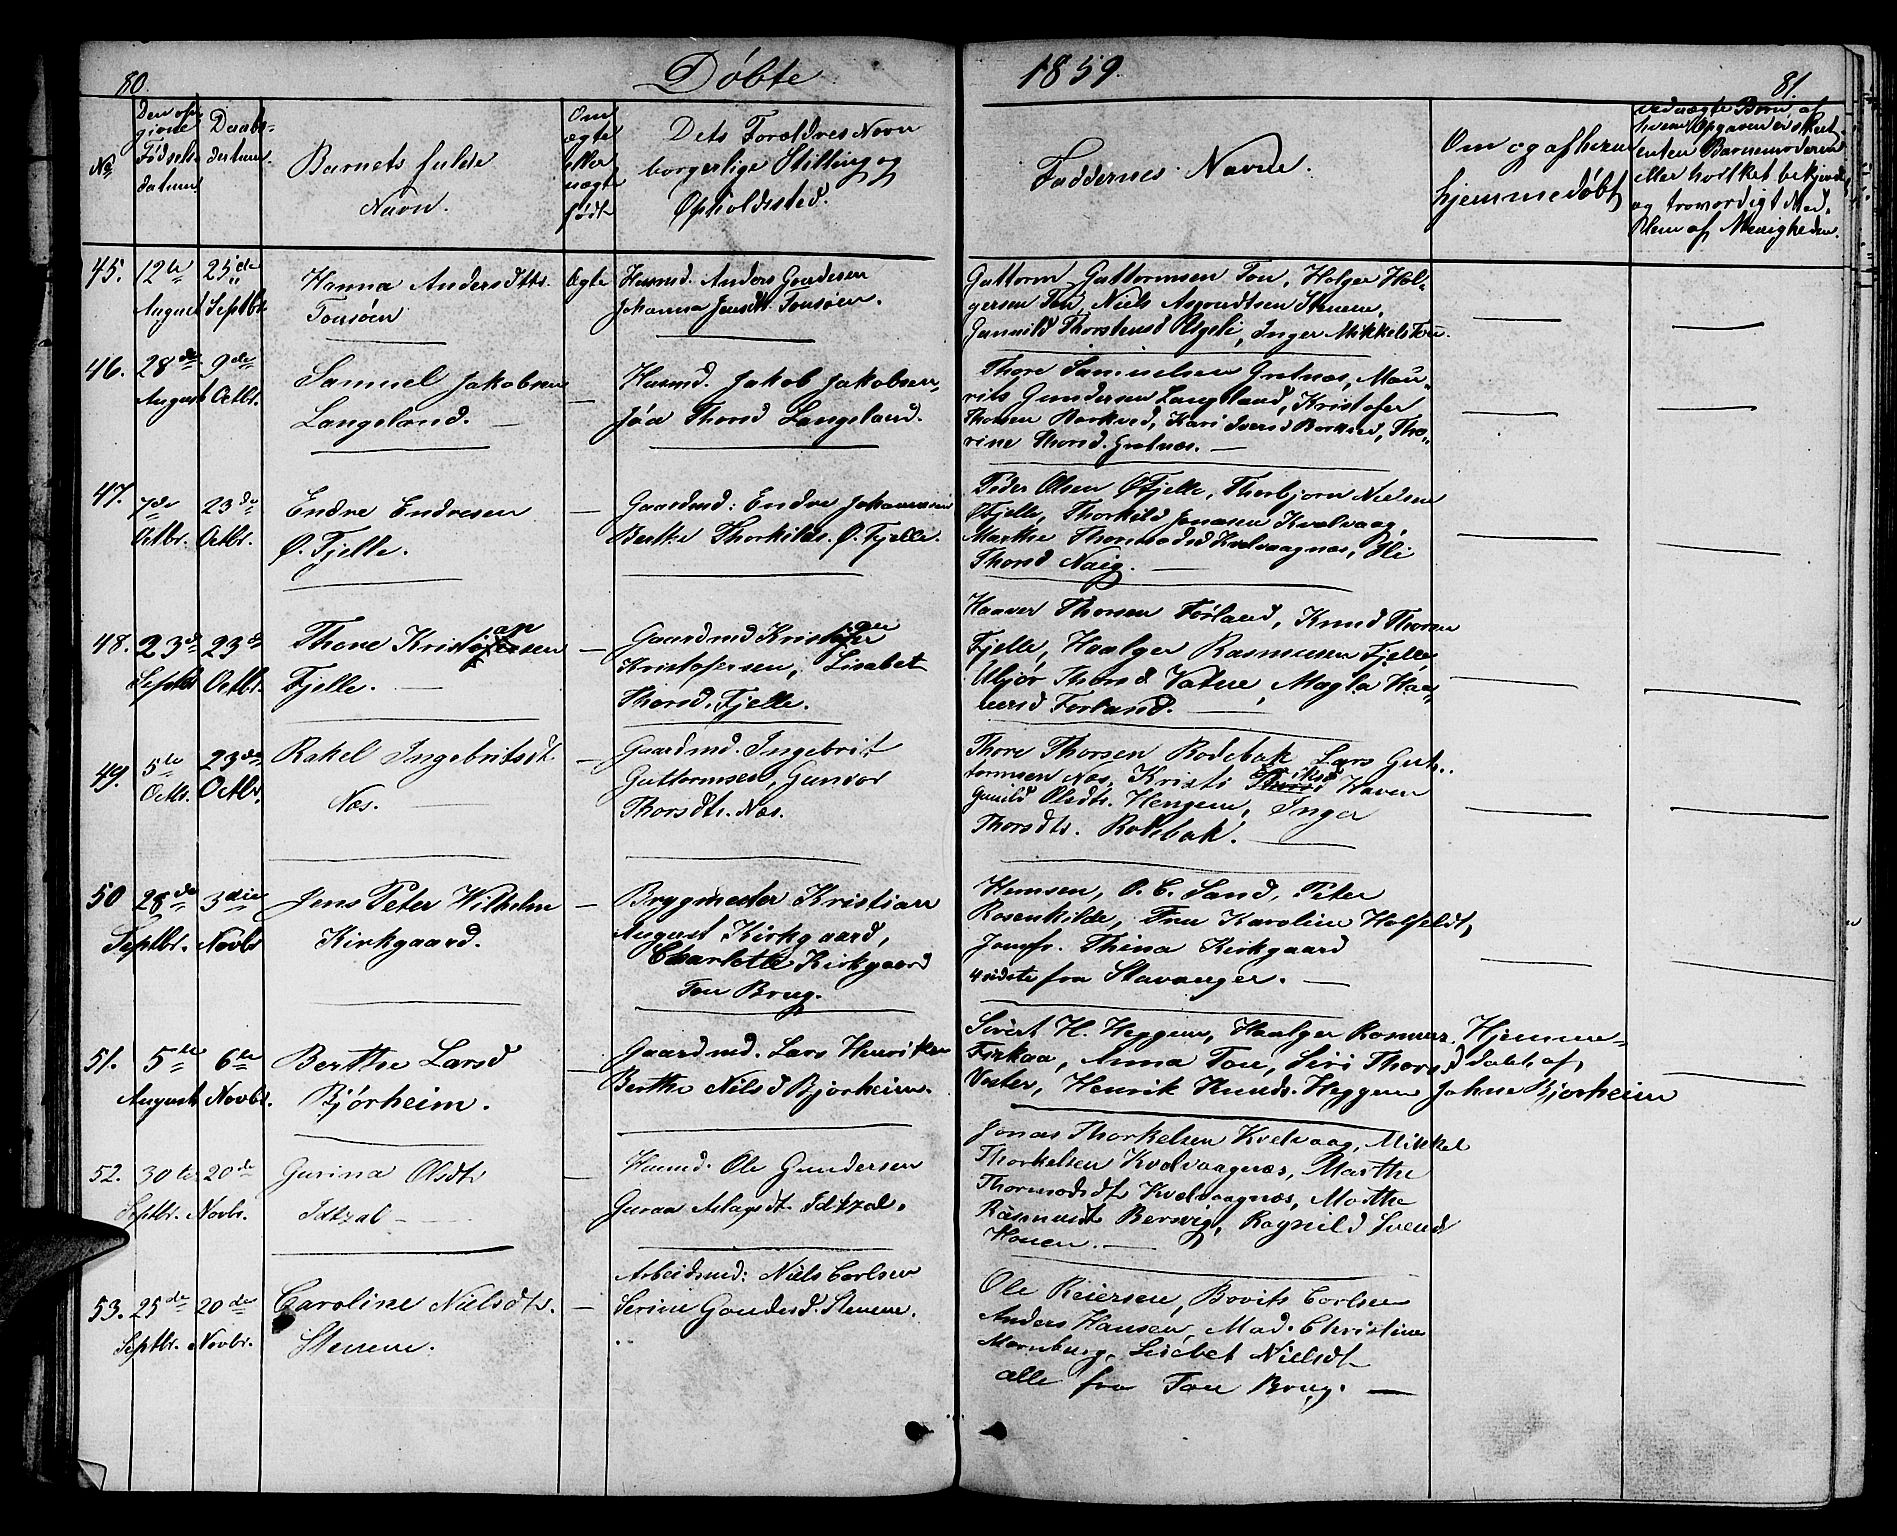 80.
Døbte
1859.
81.
No
Den opgivne Fødselsdatum
Daabsdatum.
Barnets fulde
Navn.
Om ægte eller uægte født
Dets Forældres Navn
borgerlige Stilling og
Opholdssted.
Faddernes Navne.
Om og af hvem
hjemmedøbt
45. 12te August
25de Septbr.
Hanna Andersdttr.
Tousøen
Ægte
Husmd. Anders Goudesen
Johanna Jensdtt. Tousøen.
Guttorm Guttormsen Tou, Holger Hol-
gersen Tou, Niels Asgoudtsen Stenene,
Gunnild Thorstensd Østeli, Inger Mikkelsd Tou.
46. 28de August
9de Octbr.
Samuel Jakobsen
Langeland. —
—
Husmd. Jakob Jakobsen,
Jóa Thorsd Langeland.
Thore Samuelsen Gretnæs, Mau-
rits Gundersen Langeland, Kristofer
Thorsen Barkved, Kari Iversd Barkved, Tho-
rine Thorsd. Gretnæs. —
47. 7de Octbr.
23de Octbr.
Endre Endresen
Ø. Fjelle.
—
Gaardmd: Endre Johannesen
Berthe Thorkilds. Ø. Fjelle.
Peder Olsen ØFjelle, Thorbjorn Nielsen
ØFjelle, Thorkild Jonasen Kvalvaag,
Marthe Thormodsd Kvalvaagnæs, Eli
Thorsd Naig. —
48. 23de Septbr
23de Octbr.
Thore Kristiansen
Fjelle. —
—
Gaardmd Kristian
Kristofersen, Lisabet
Thorsd. Fjelle.
Haaver Thorsen Førland, Knud Thorsen
Fjelle, Haalger Rasmusen Fjelle
Uljør Thorsd Vatne, Magla Haa-
versd Førland. —
49. 5te Octbr.
23de Octbr.
Rakel Ingebritsdt.
Næs. —
—
Gaardmd. Ingebrit
Guttormsen, Gunvor
Thorsdtr. Næs.
Thore Thorsen Rodebak Lars Gut-
tormsen Næs, Kristi Eriksd Haven
Gunild Olsdtr. Hengene, Inger
Thorsdtr. Rodebak. —
50 28de Septbr.
3die Novbr
Jens Peter Wilhelm
Kirkgaard.
—
Brygmester Kristian
August Kirkgaard,
Charlotte Kirkgaard
Tou Brug.
Hemsen, O. C. Sand, Peter
Rosenkilde, Fru Karoline Holfeldt,
Jomfr. Thina Kirkgaard
sidste fra Stavanger. —
51. 5te August
6te Novbr.
Berthe Larsd
Bjørheim.
—
Gaardmd. Lars Henriksen
Berthe Nilsd Bjørheim.
Sivert H. Heggem, Haalger Rasmus.
Fiskaa, Anna Tou, Siri Thorsd
Voster, Henrik Knuds. Heggem
Hjemme-
døbt af
Johne Bjørheim
52. 30te Septbr.
20de Novbr.
Gurina Olsdtr
Idtzal —
—
Husmd. Ole Gundersen
Guraa Aslagsdt Idtzal.
Jonas Thorkelsen Kvelvaag, Mikkel
Thorkelsen Kvalvaagnæs, Marthe
Thormodsdt Kvalvaagnæs, Marthe
Rasmusdt Bersvig, Ragnild Svends
Haven. —
53. 25de Septbr.
20de Novbr.
Caroline Nielsdtr.
Stenene.
—
Arbeidsmd: Niels Carlsen
Serine Goudesd. Stenene.
Ole Reiersen, Bovits Carlsen
Anders Hansen, Mad. Christine
Mornburg, Lisbet Nielsdt
alle fra Tou Brug. —